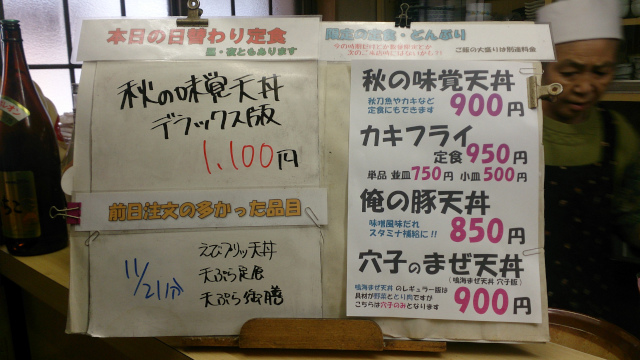 本日の日替わり定食
昼・夜ともあります
秋の味覚天丼
デラックス版
1,100円
前日注文の多かった品目
11/21分
えびプリッ天丼
天ぷら定食
天ぷら御膳
限定の定食・どんぶり
ご飯の大盛りは別途料金
秋の味覚天丼
秋刀魚やカキなど
定食にもできます
900円
カキフライ
定食 950円
単品 並皿750円 小皿500円
俺の豚天丼
味噌風味だれ
スタミナ補給に!!
850円
穴子のまぜ天丼
(鳴海まぜ天丼 穴子版)
鳴海まぜ天丼 のレギュラー版は
具材が野菜ととり肉ですが
こちらは穴子のみとなります
900円